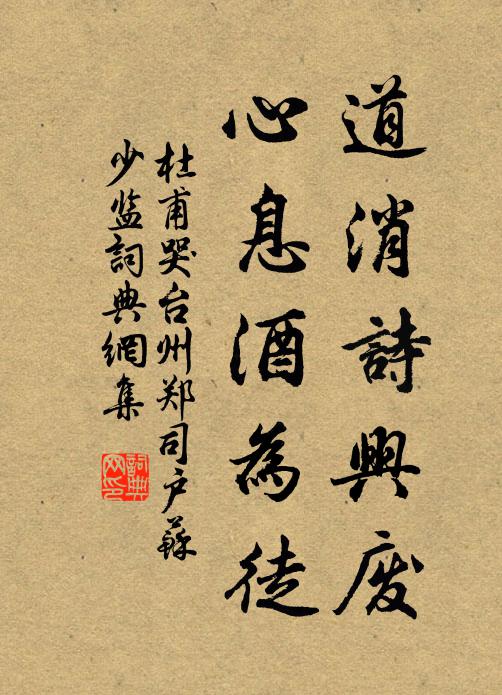 道消詩興废
心息酒為徒
杜甫哭台州郑司户蘇
少监詞典網集
詞典网印